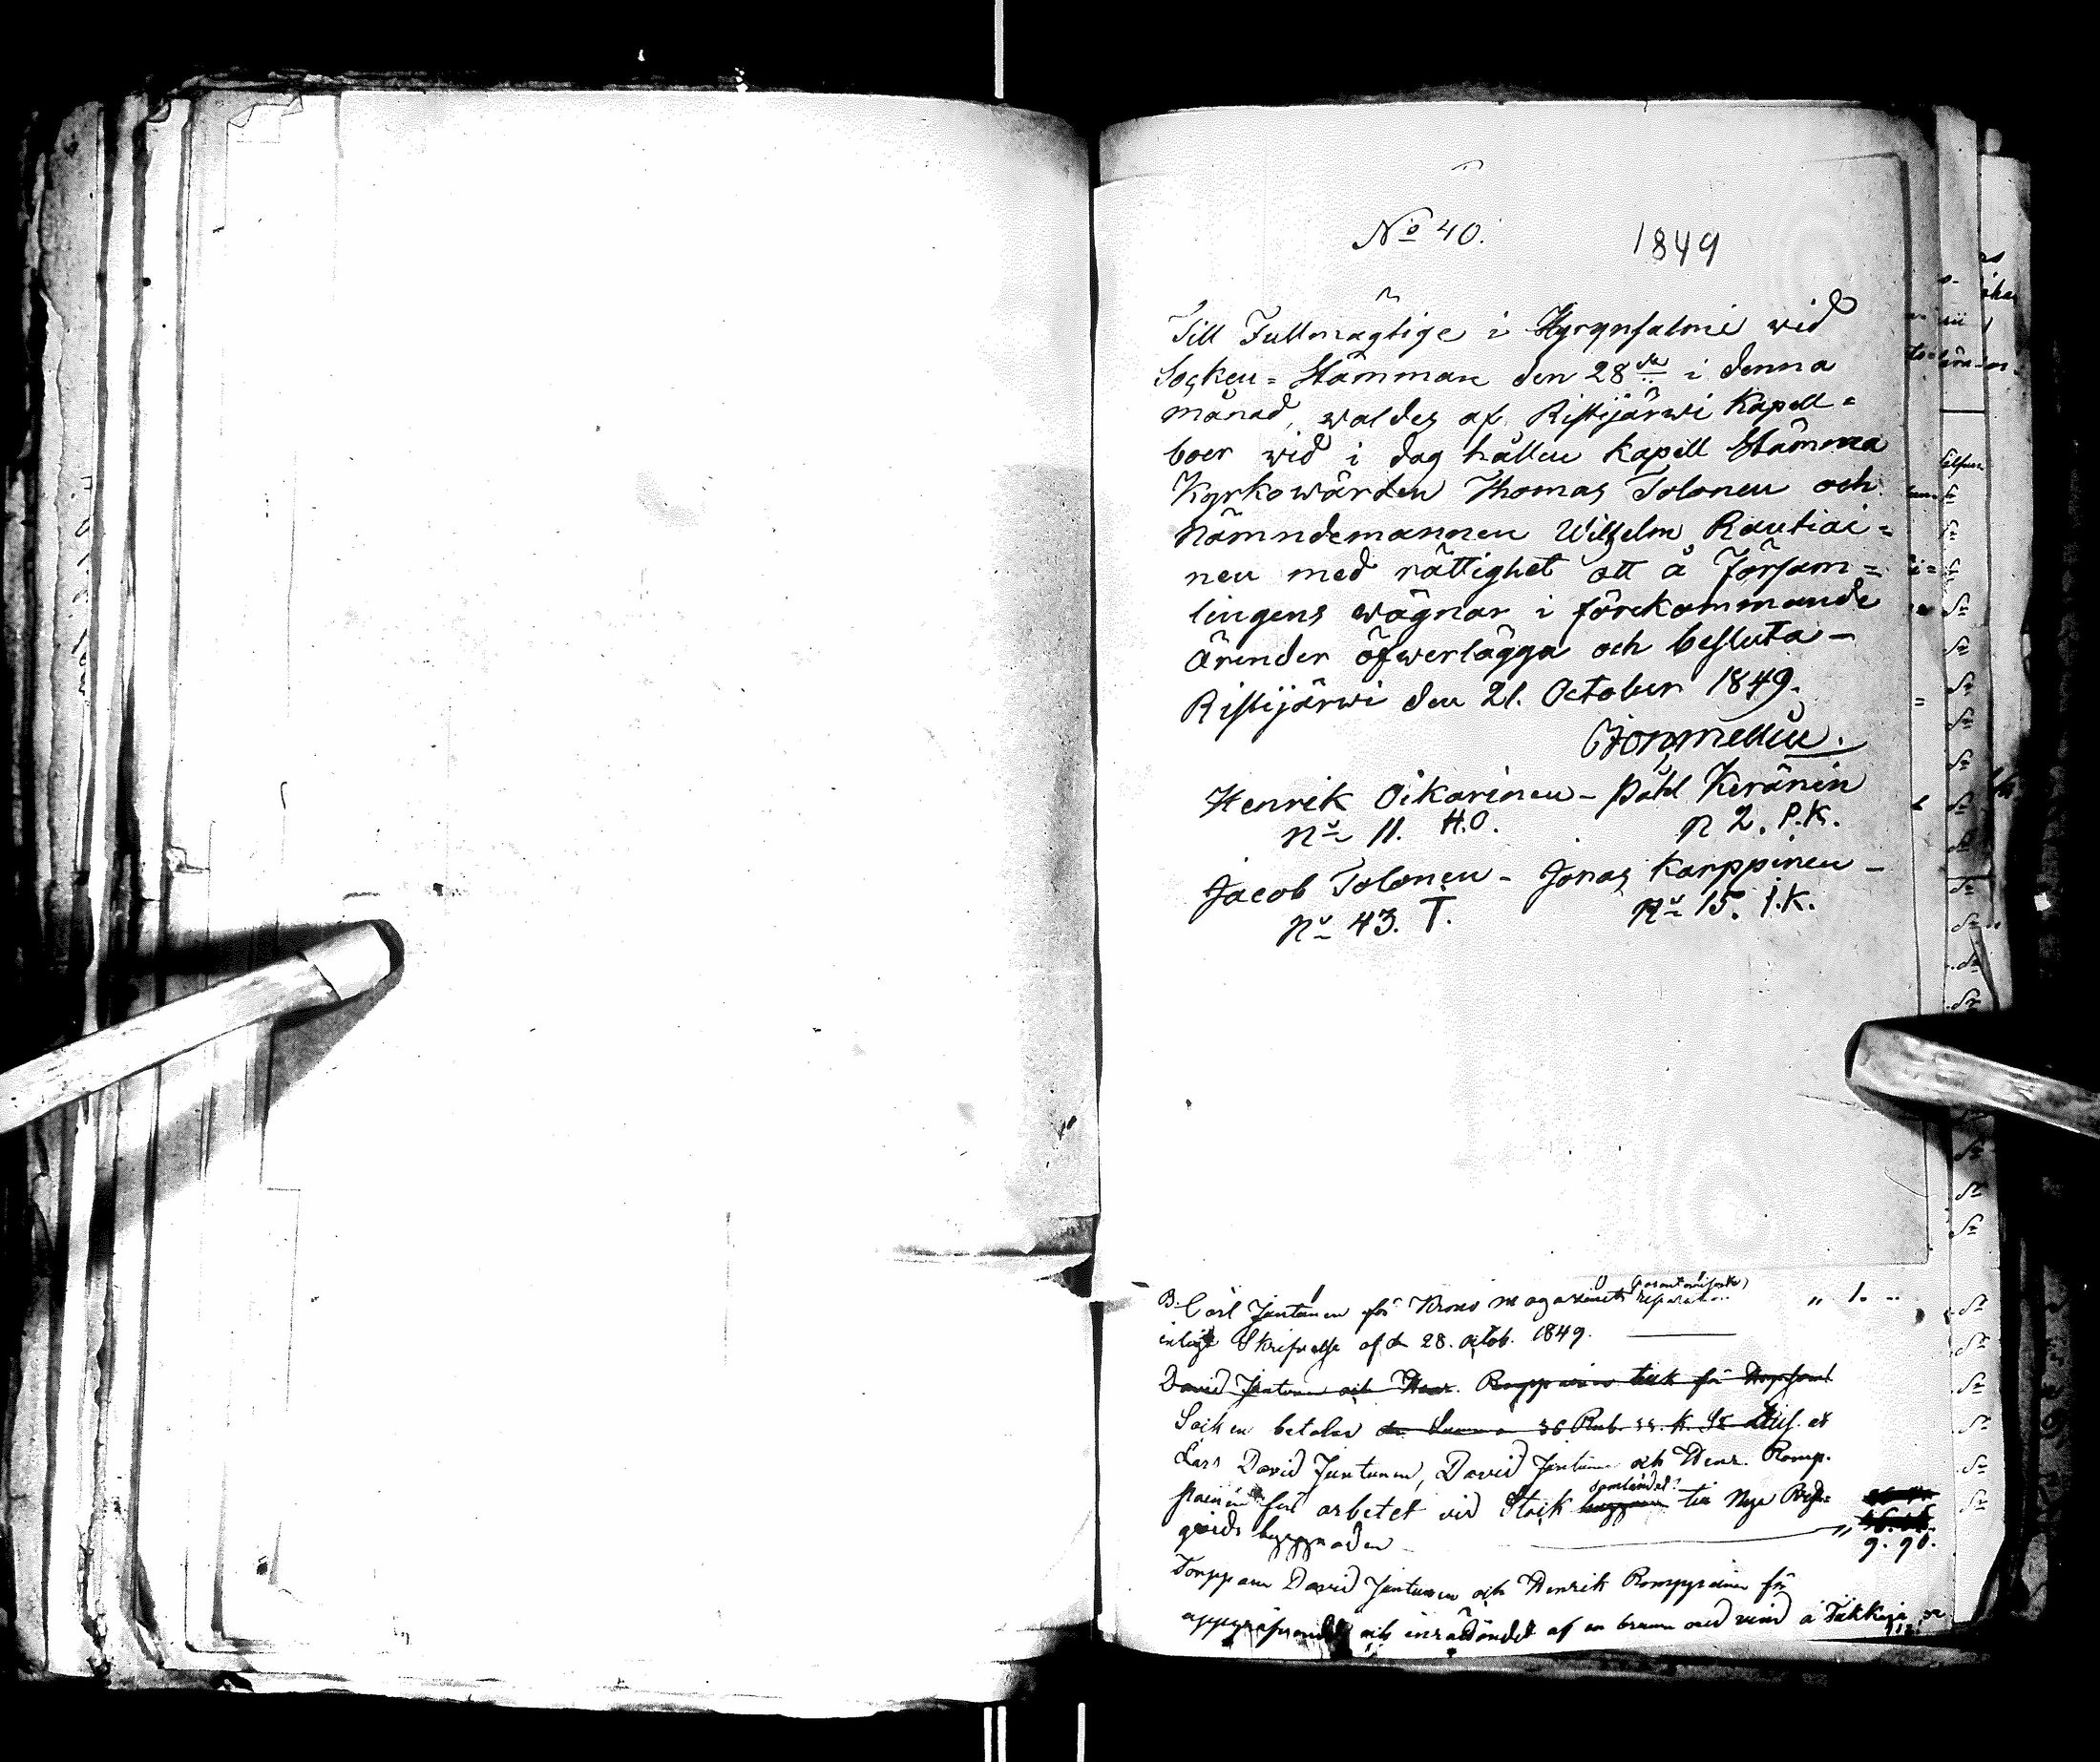 No 40. 1849
Till Fullmägtige i Hyrynsalmi wid
Socken-Stämman den 28de i denna
månad, waldes af Ristijärwi Kapell-
boer wid i dag hållen Kapell Stämma
Kyrkowärden Thomas Tolonen och
Nämndemannen Wilhelm Rautiai-
nen med rättighet att å Försam-
lingens wägnar i förekommande
Ärender öfwerlägga och besluta –
Ristijärwi den 21. October 1849.
Henrik Oikarinen – Påhl Keränen
No 11. H.O. N 2. P.K.
Jacob Tolonen – Jonas Karppinen –
No 43. T. No 15. I.K.
Carl Juntunen för Krono magasinets reparation „ 1. „
enligt Skrifvelse af d. 28. octob. 1849.
David Juntunen och Henr. Romppainen för
Socken betalar
Lars David Juntunen, David Juntunen och Henr. Romp-
painen för arbetet vid Stock till Nya
gårds byggnaden „ 9. 90.
Torppare David Juntunen och Henrik Romppainen för
och inrättandet af en brunn med vind å